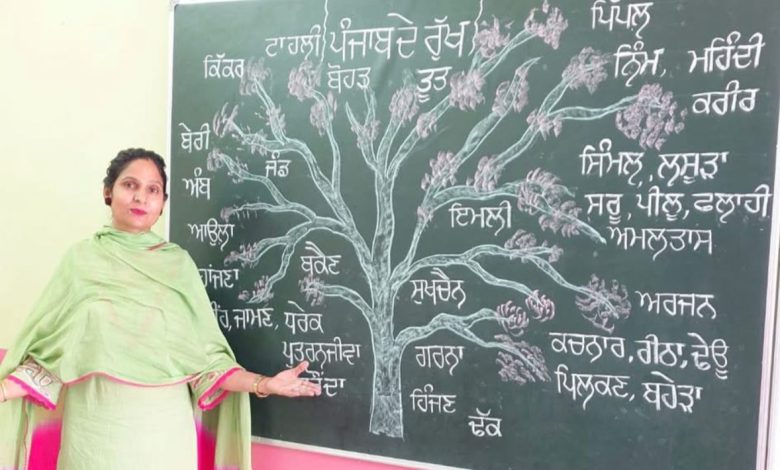 ਪੰਜਾਬ ਦੇ ਰੁੱਖ
ਟਾਹਲੀ
ਕਿੱਕਰ
ਬੋਹੜ
ਤੂਤ
ਪਿੱਪਲ
ਨਿੰਮ, ਮਹਿੰਦੀ
ਕਰੀਰ
ਬੇਰੀ
ਜੰਡ
ਅੰਬ
ਸਿੰਮਲ, ਲਸੂੜਾ
ਸਰੂ, ਪੀਲੂ, ਫਲਾਹੀ
ਅਮਲਤਾਸ
ਇਮਲੀ
ਆਉਲਾ
ਬਕੈਣ
ਸੁਖਚੈਨ
ਅਰਜਨ
ਜਾਮਣ, ਧਰੇਕ
ਪੁਤਰਨਜੀਵਾ
ਗਰਨਾ
ਕਚਨਾਰ, ਰੀਠਾ, ਢੇਊ
ਪਿਲਕਣ, ਬਹੇੜਾ
ਹਿੰਜਣ
ਢੱਕ